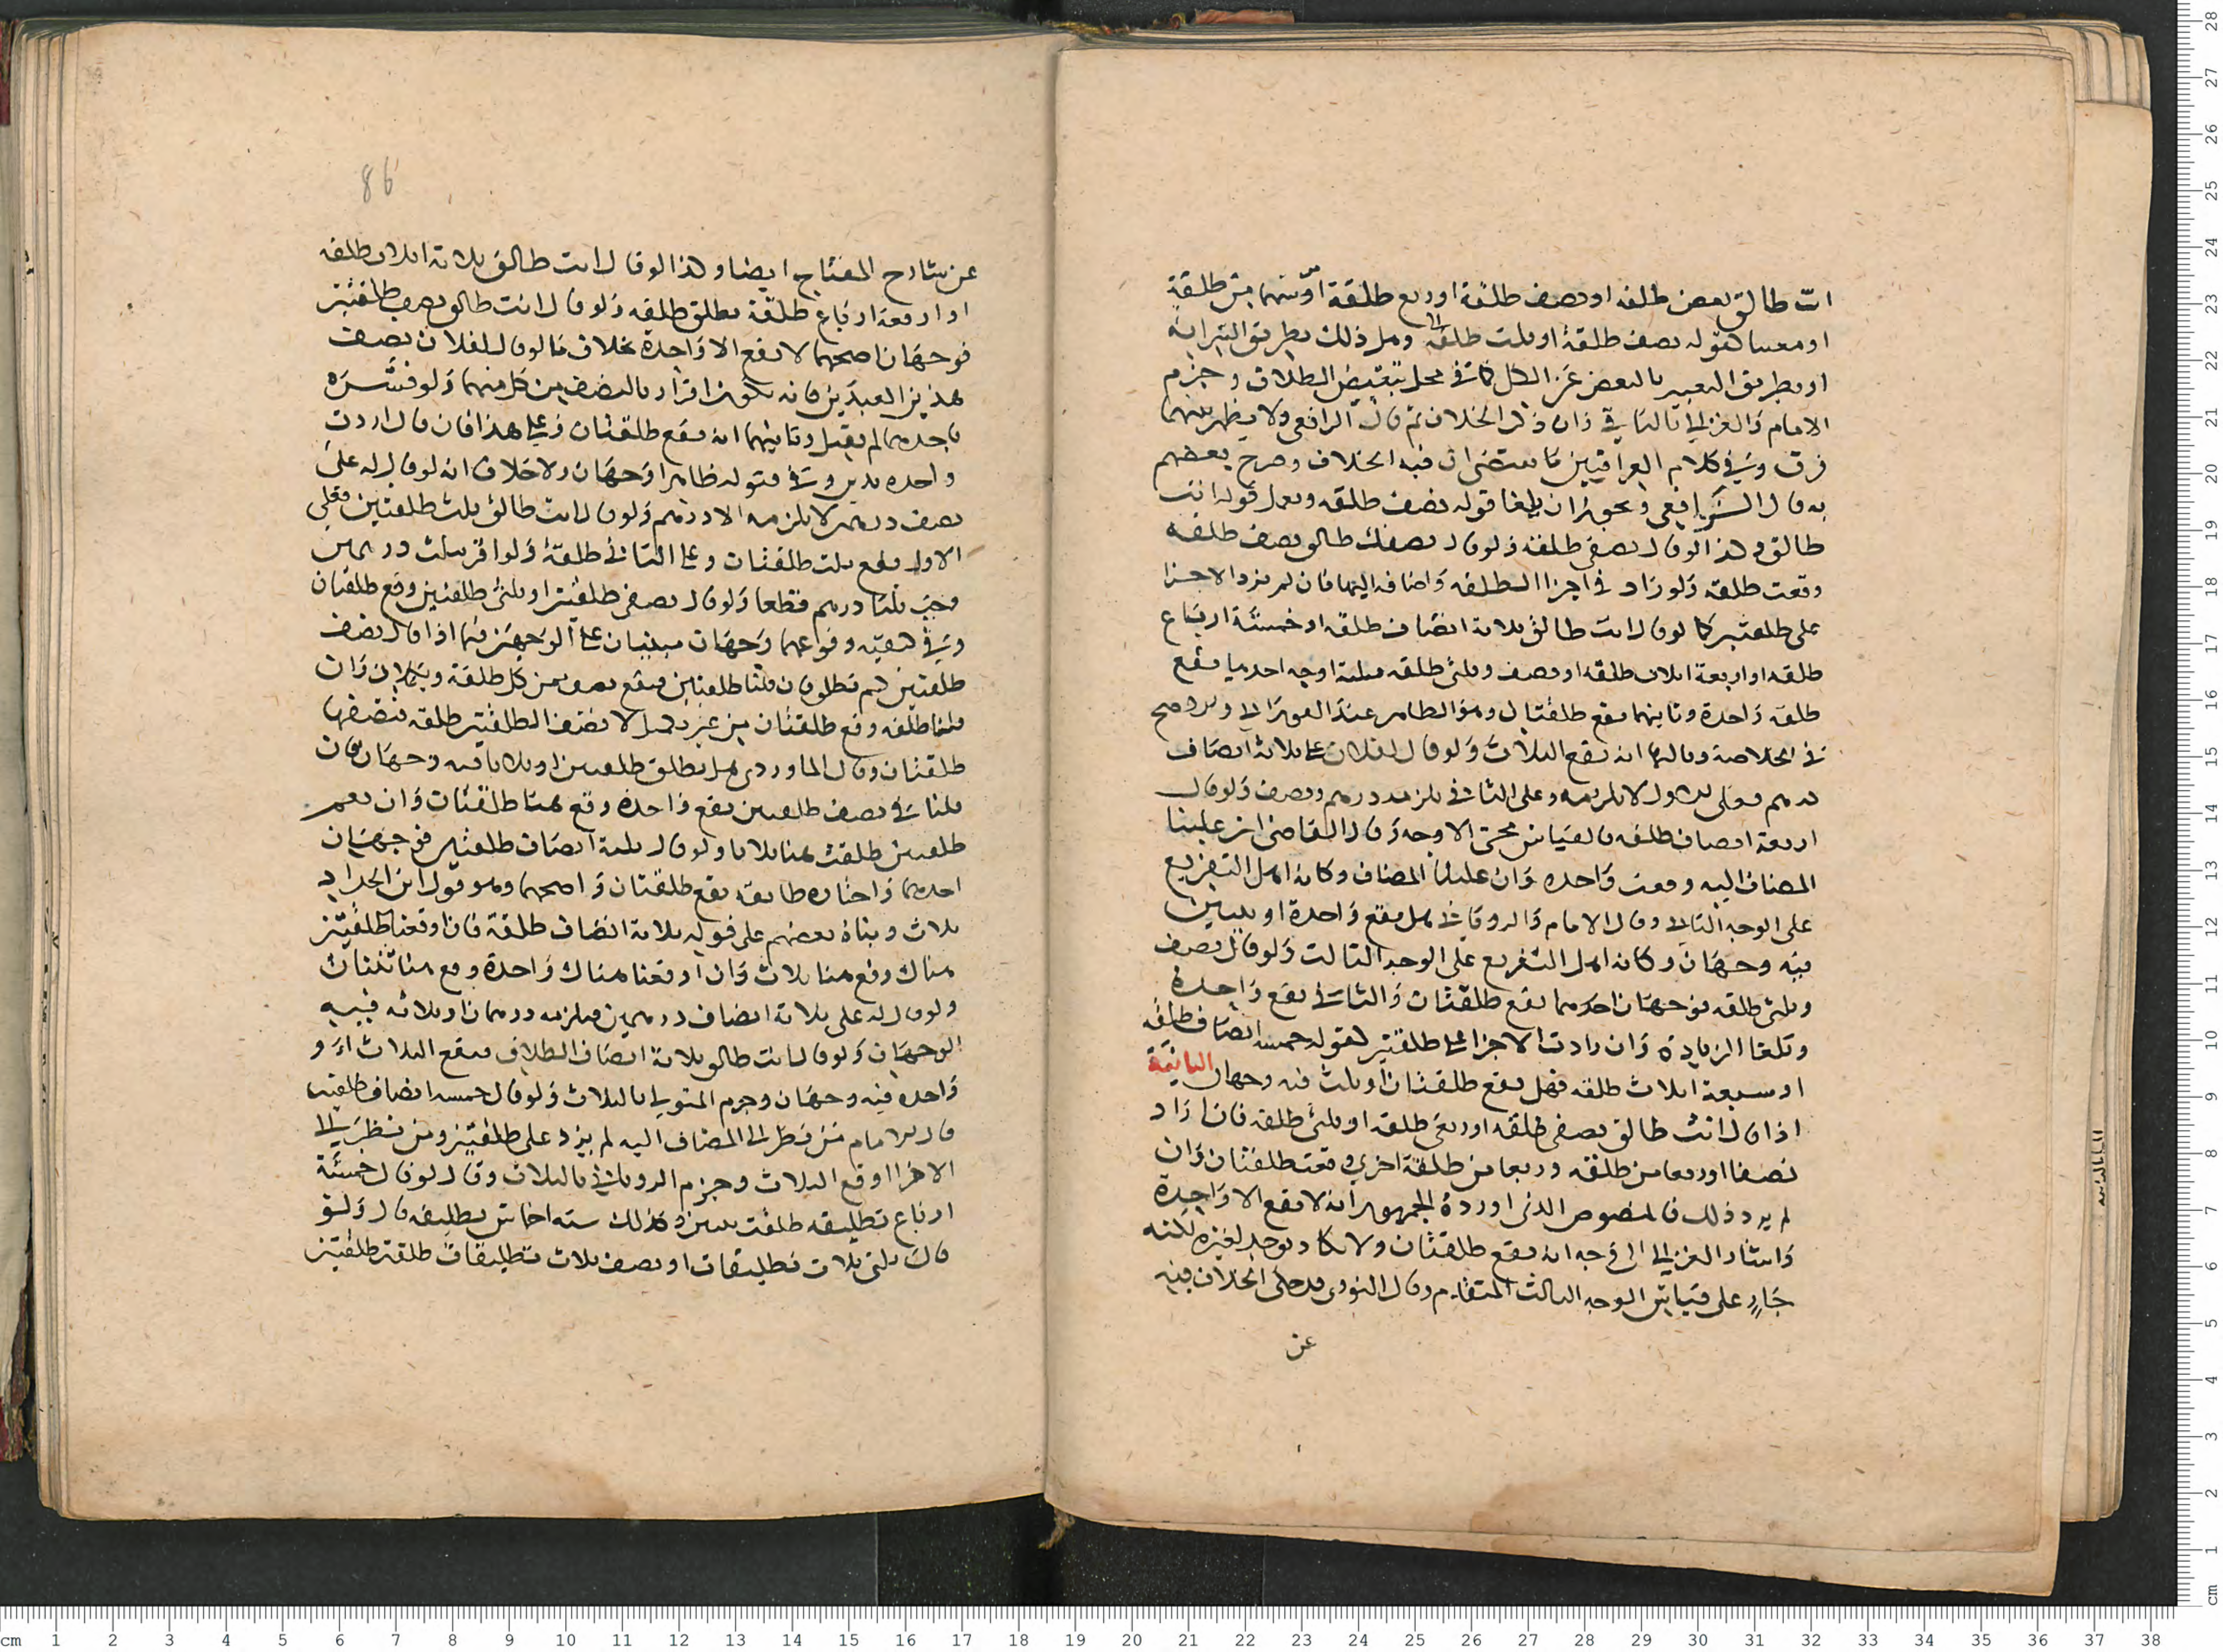 انت طالق بعض طلقة او نصف طلقة او ربع طلقة او سهما من طلقة
او معينا كقوله نصف طلقة او ثلث طلقة وهل ذلك بطريق السراية
او بطريق التعبير بالبعض عن الكل كما في محل تبعيض الطلاق وجزم
الامام والغزالي بالثاني وان ذكرا الخلاف ثم قال الرافعي ولا يظهر بينهما
فرق وفي كلام العراقيين ما يقتضي ان فيه الخلاف وصرح بعضهم
به قال الرافعي ويجوز ان يلغا قوله نصف طلقة ويعمل قوله انت
طالق وكذا لو قال نصفي طلقة ولو قال نصفك طالق نصف طلقة
وقعت طلقة ولو زاد في اجزا الطلقة واضافه اليها فان لم يزد الاجزا
على طلقتين كما لو قال انت طالق ثلاثة انصاف طلقة او خمسة ارباع
طلقة او اربعة اثلاث طلقة او نصف وثلثي طلقة فثلثة اوجه احدها يقع
طلقة واحدة وثانيها يقع طلقتان وهو الظاهر عند الغزالي
في الخلاصة وثالثها انه يقع الثلاث ولو قال لفلان علي ثلاثة انصاف
درهم فعلى الاول لا يلزمه وعلى الثاني يلزمه درهم ونصف ولو قال
اربعة انصاف طلقة فالقياس مجي الاوجه وقال القاضي ان غلبنا
المضاف اليه وقعت واحدة وان غلبنا المضاف وكانه اهل التفريع
على الوجه الثاني وقال الامام والروياني هل يقع واحدة او ثنتين
فيه وجهان وكانه اهل التفريع على الوجه الثالث ولو قال نصف
وثلثي طلقة فوجهان احدهما يقع طلقتان والثاني يقع واحدة
وتلغا الزيادة وان زادت الاجزا على طلقتين كقوله خمسة انصاف طلقة
او سبعة اثلاث طلقة فهل يقع طلقتان او ثلث فيه وجهان الثانية
اذا قال انت طالق نصفي طلقة او ربعي طلقة او ثلثي طلقة فان اراد
نصفا او ربعا من طلقة وربعا من طلقة اخرى وقعت طلقتان وان
لم يرد ذلك فالمنصوص الذي اورده الجمهور انه لا يقع الا واحدة
واشار الغزالي الى وجه انه يقع طلقتان ولا يكاد يوجد لغيره لكنه
جار على قياس الوجه الثالث المتقدم وقال النووي قد حكى الخلاف فيه
عن
86
عن شارح المفتاح ايضا وكذا لو قال انت طالق ثلاثة اثلاث طلقة
او اربعة ارباع طلقة تطلق طلقة ولو قال انت طالق نصف طلقتين
فوجهان اصحهما لا يقع الا واحدة بخلاف ما لو قال لفلان نصف
هذين العبدين فانه يكون اقرارا بالنصف من كل منهما ولو فسره
باحدهما لم يقبل وثانيهما انه يقع طلقتان وعلى هذا فان قال اردت
واحدة يدين وفي قبوله ظاهرا وجهان ولا خلاف انه لو قال له علي
نصف درهمين لا يلزمه الا درهم ولو قال انت طالق ثلث طلقتين فعلى
الاول يقع ثلث طلقتان وعلى الثاني طلقة ولو اقر بثلث درهمين
وجب ثلثا درهم قطعا ولو قال نصفي طلقتين او ثلثي طلقتين وقع طلقتان
وفي كيفية وقوعهما وجهان مبنيان على الوجهين فيما اذا قال نصف
طلقتين لم تطلق فان قلنا طلقتين فيقع نصف من كل طلقة ويكملان وان
قلنا طلقة وقع طلقتان من غير تكميل لان نصف الطلقتين طلقة فنصفاها
طلقتان وقال الماوردي هل يطلق طلقتين او ثلاثا فيه وجهان فان
قلنا في نصف طلقتين يقع واحدة وقع هنا طلقتان وان يقع
طلقتين طلقت هنا ثلاثا ولو قال ثلثة انصاف طلقتين فوجهان
احدهما واختاره طائفة يقع طلقتان واصحهما وهو قول ابن الحداد
ثلاث وبناه بعضهم على قوله ثلاثة انصاف طلقة فان اوقعنا طلقتين
هناك وقع هنا ثلاث وان اوقعنا هناك واحدة وقع هنا ثنتان
ولو قال له علي ثلاثة انصاف درهمين فيلزمه درهمان او ثلاثة فيه
الوجهان ولو قال انت طالق ثلاثة انصاف الطلاق فيقع الثلاث او
واحدة فيه وجهان وجزم المتولي بالثلاث ولو قال خمسة انصاف طلقتين
قال الامام من نظر الى المضاف اليه لم يزد على طلقتين ومن نظر الى
الاجزا اوقع الثلاث وجزم الروياني بالثلاث وقال لو قال خمسة
ارباع تطليقه طلقت ثنتين وكذلك ستة اخماس تطليقة قال ولو
قال ثلثي ثلاث تطليقات او نصف ثلاث تطليقات طلقت طلقتين